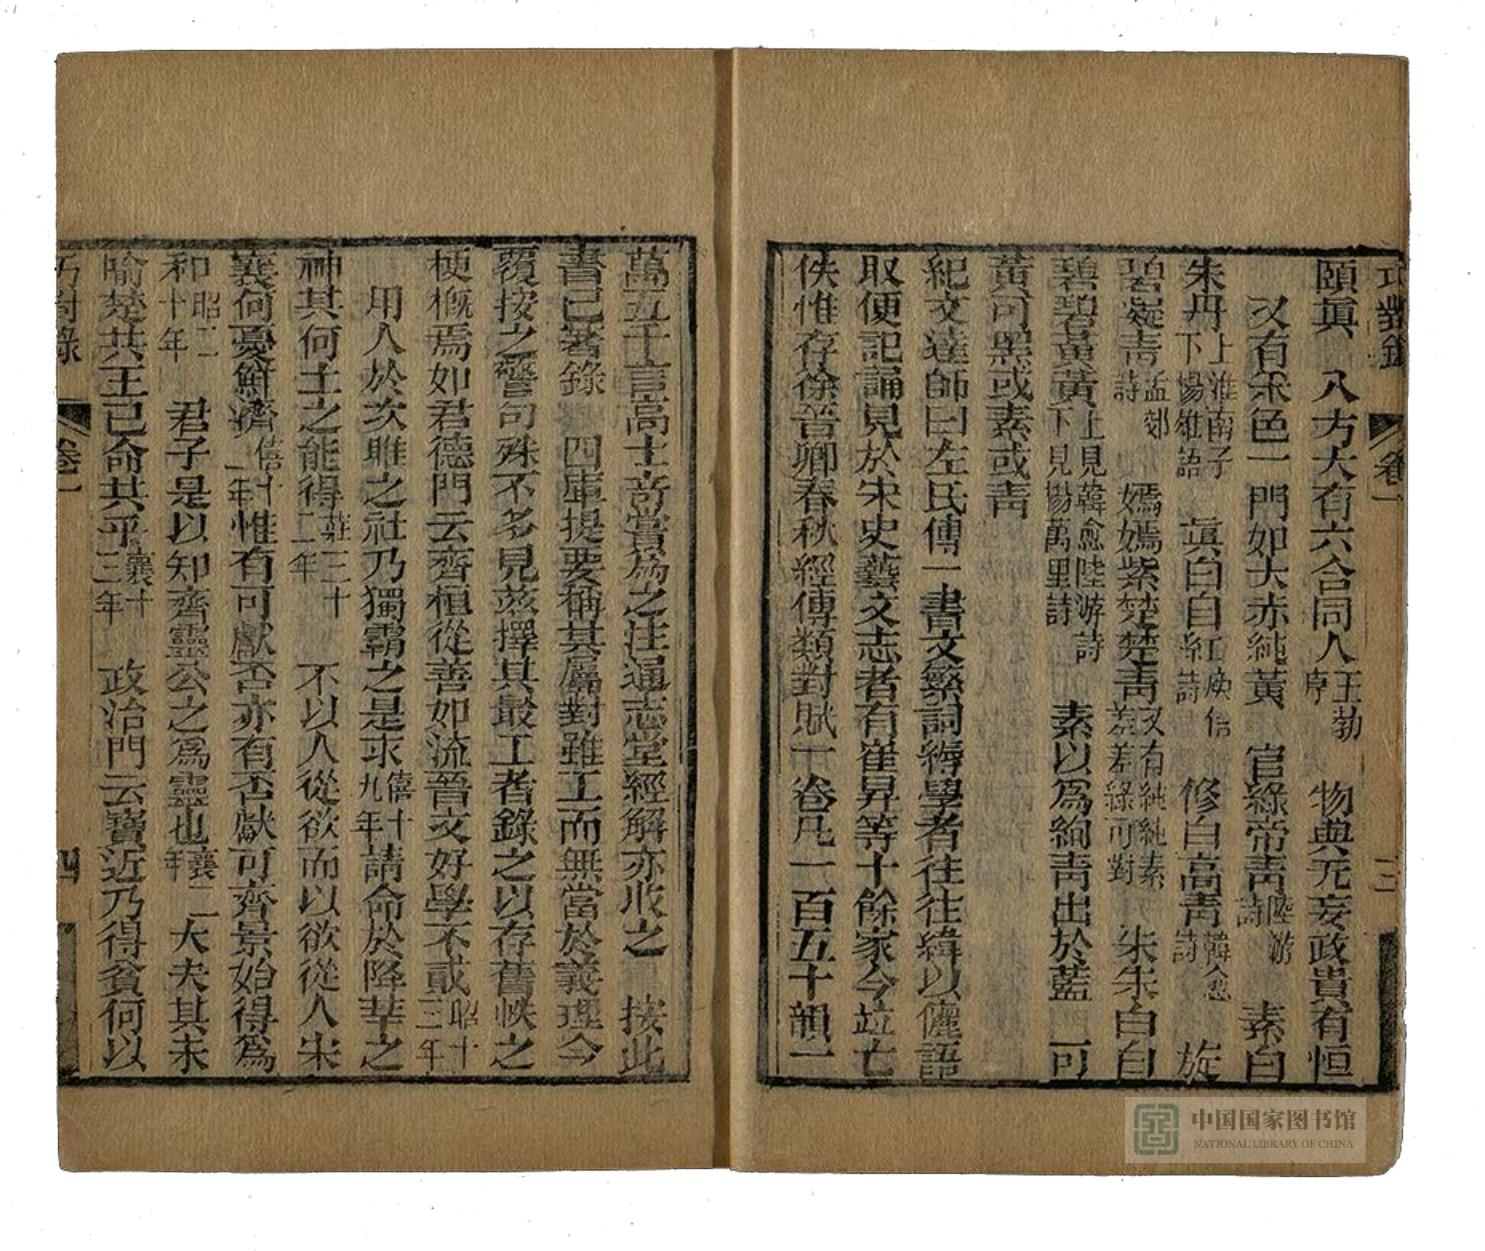 巧對錄
卷一
三
頤真　八方大有六合同人王勃序　物典无妄政貴有恒
又有采色一門如大赤純黃　官綠帝青陸游詩　素白
朱丹上淮南子下揚雄語　真白白紅庾信詩　修白高青韓愈詩　旋
碧凝青孟郊詩　嫣嫣紫楚楚青又有純純素差差綠可對　朱朱白白
碧碧黃黃上見韓愈陸游詩下見楊萬里詩　素以為絢青出於藍　可
黃可黑或素或青
紀文達師曰左氏傳一書文繁詞縟學者往往緯以儷語
取便記誦見於宋史藝文志者有崔昇等十餘家今竝亡
佚惟存徐晉卿春秋經傳類對賦一卷凡一百五十韻一
萬五千言高士奇嘗為之注通志堂經解亦收之　按此
書已著錄　四庫提要稱其屬對雖工而無當於義理今
覆按之警句殊不多見茲擇其最工者錄之以存舊帙之
梗概焉如君德門云齊桓從善如流晉文好學不貳昭十三年
用人於次睢之社乃獨霸之是求僖十九年請命於降莘之
神其何土之能得莊三十二年　不以人從欲而以欲從人宋
襄何憂鮮濟僖二十一年惟有可獻否亦有否獻可齊景始得為
和昭二十年　君子是以知齊靈公之為靈也襄二年大夫其未
喻楚共王已命共乎襄十三年　政治門云寶近乃得貧何以
巧對錄
卷一
四
中国国家图书馆
NATIONAL LIBRARY OF CHINA